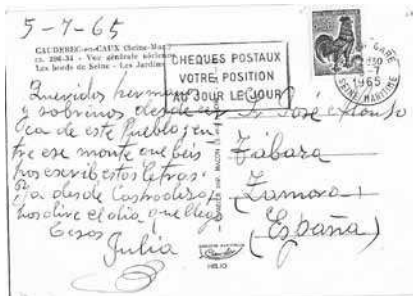 5-7-65
CAUDEBEC-en-CAUX (Seine-Mar.)
Vue générale aérienne
Les bords de Seine - Les Jardins
CHEQUES POSTAUX
VOTRE POSITION
AU JOUR LE JOUR
GARE
1965
SEINE MARITIME
Queridos hermanos
y sobrinos desde
de este Pueblo y en
tre ese monte que beis
hos escribo estos letras.
ya desde Castroderza
hos dire el dia que llego
Besos
Julia
Sr José Alonso
Tábara
Zamora
(España)
HELIO